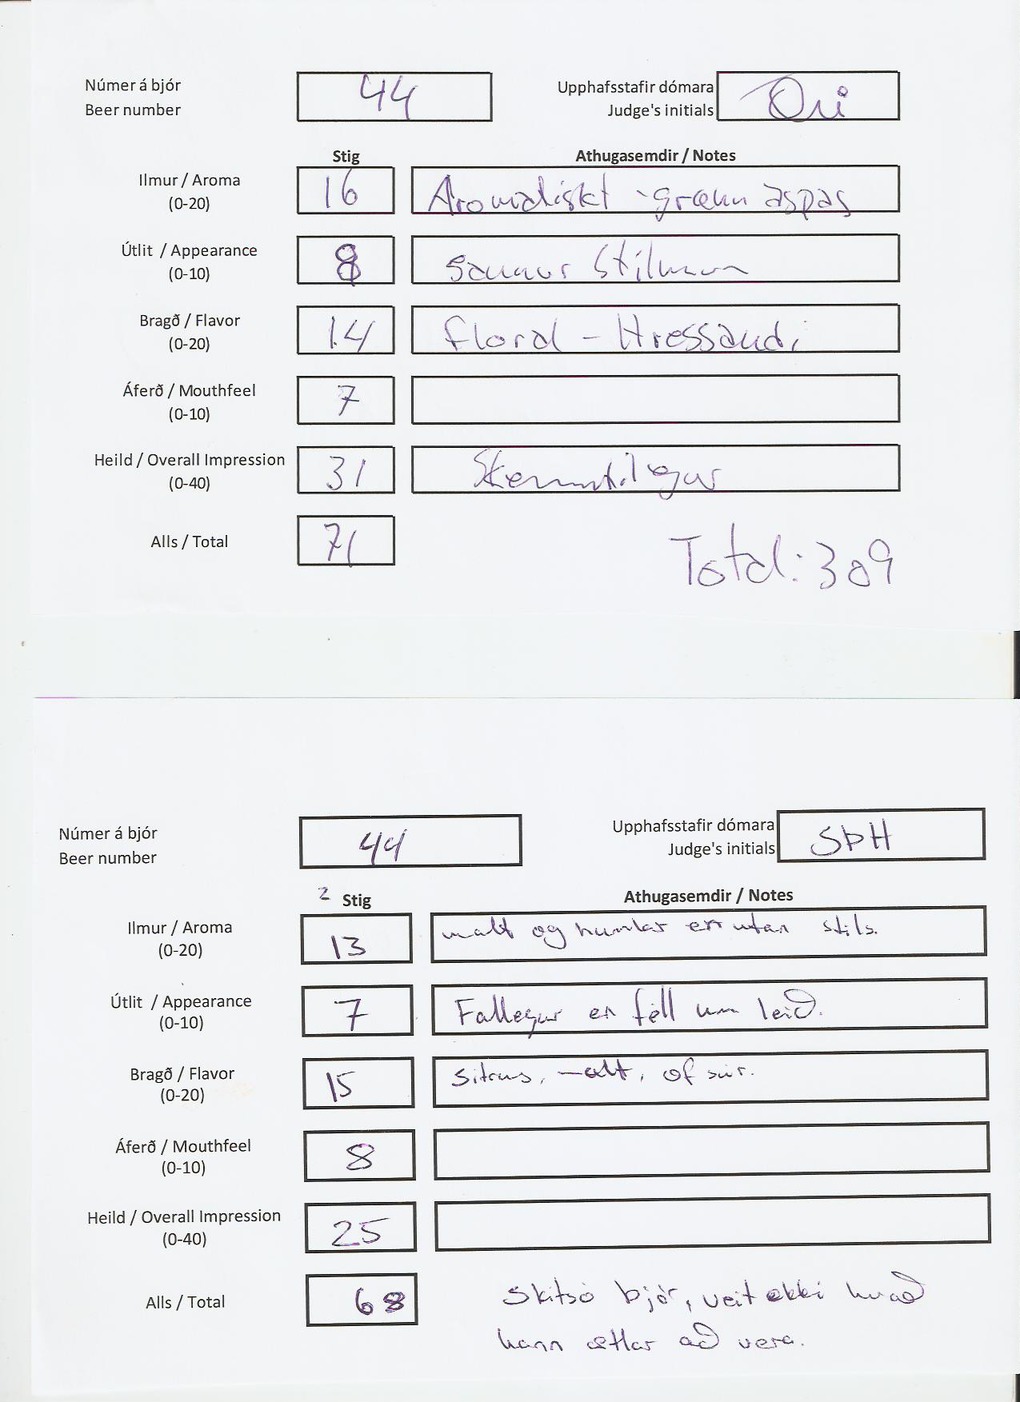 Númer á bjór
Beer number
44
Upphafsstafir dómara
Judge's initials
Stig
Athugasemdir / Notes
Ilmur / Aroma
(0-20)
16
Aromatískt - grænn aspas
Útlit / Appearance
(0-10)
8
sannur stílnum
Bragð / Flavor
(0-20)
14
floral - Hressandi
Áferð / Mouthfeel
(0-10)
7
Heild / Overall Impression
(0-40)
31
Skemmtilegur
Alls / Total
71
Total: 309
Númer á bjór
Beer number
44
Upphafsstafir dómara
Judge's initials
SÞH
2
Stig
Athugasemdir / Notes
Ilmur / Aroma
(0-20)
13
malt og humlar eru utan stíls.
Útlit / Appearance
(0-10)
7
Fallegur en féll um leið.
Bragð / Flavor
(0-20)
15
Sítrus, malt, of súr.
Áferð / Mouthfeel
(0-10)
8
Heild / Overall Impression
(0-40)
25
Alls / Total
68
Skitsó bjór, veit ekki hvað
hann ætlar að vera.